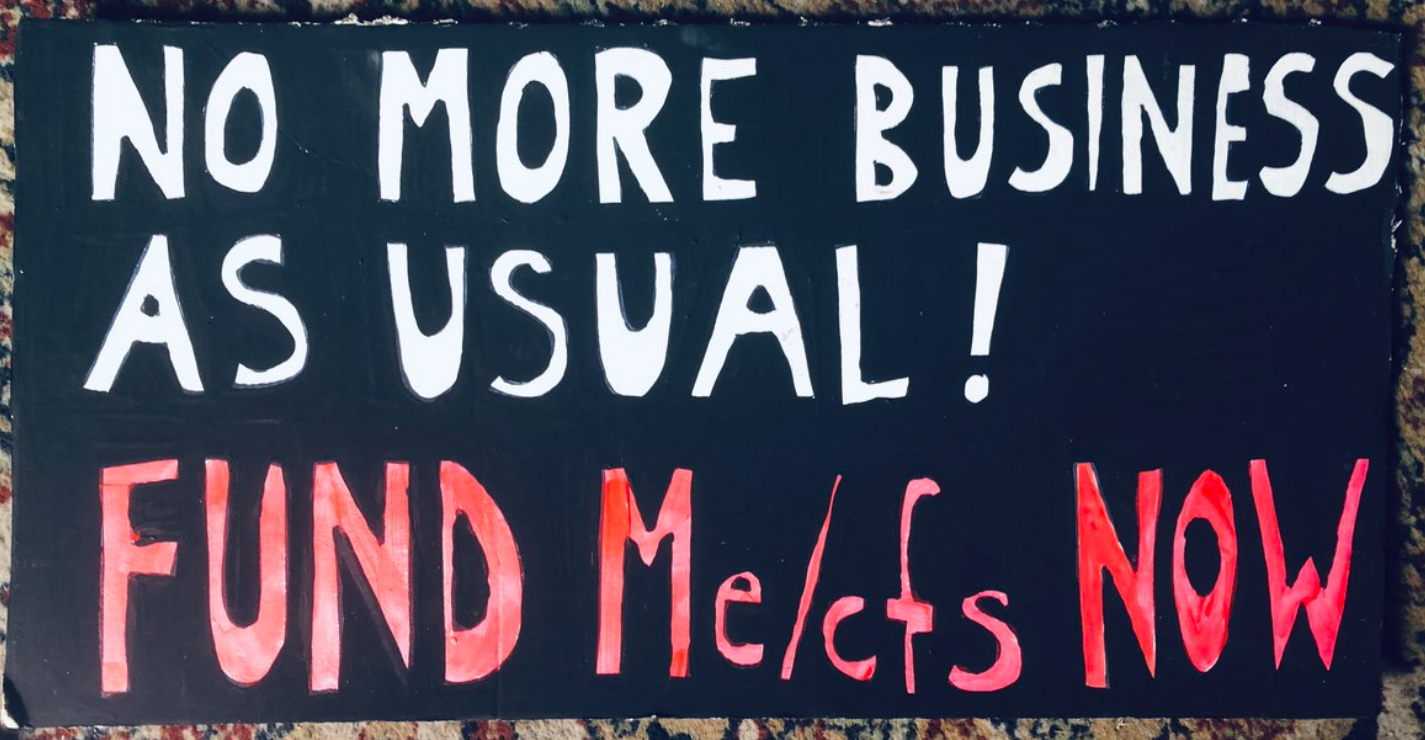 NO MORE BUSINESS
AS USUAL!
FUND Me/cfs NOW